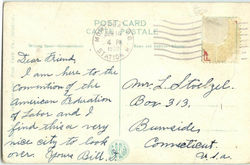 POST CARD
CARTE POSTALE
4 PM
STATION
Dear Friend,
I am here to the
convention of the
American Federation
of Labor and I
find this a very
nice city to look
over. Yours Bill
Mr. L. Stoetzel.
Box 313.
Burnside
Connecticut.
U.S.A.